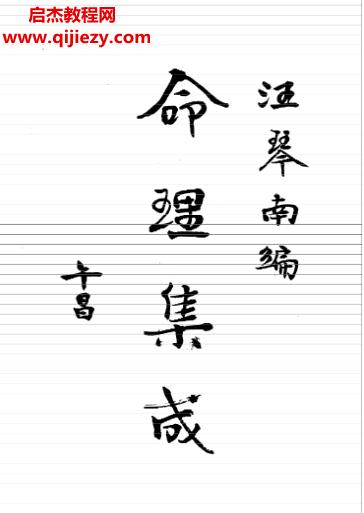 启杰教程网
www.qijiezy.com
汪琴南编
命理集成
午昌